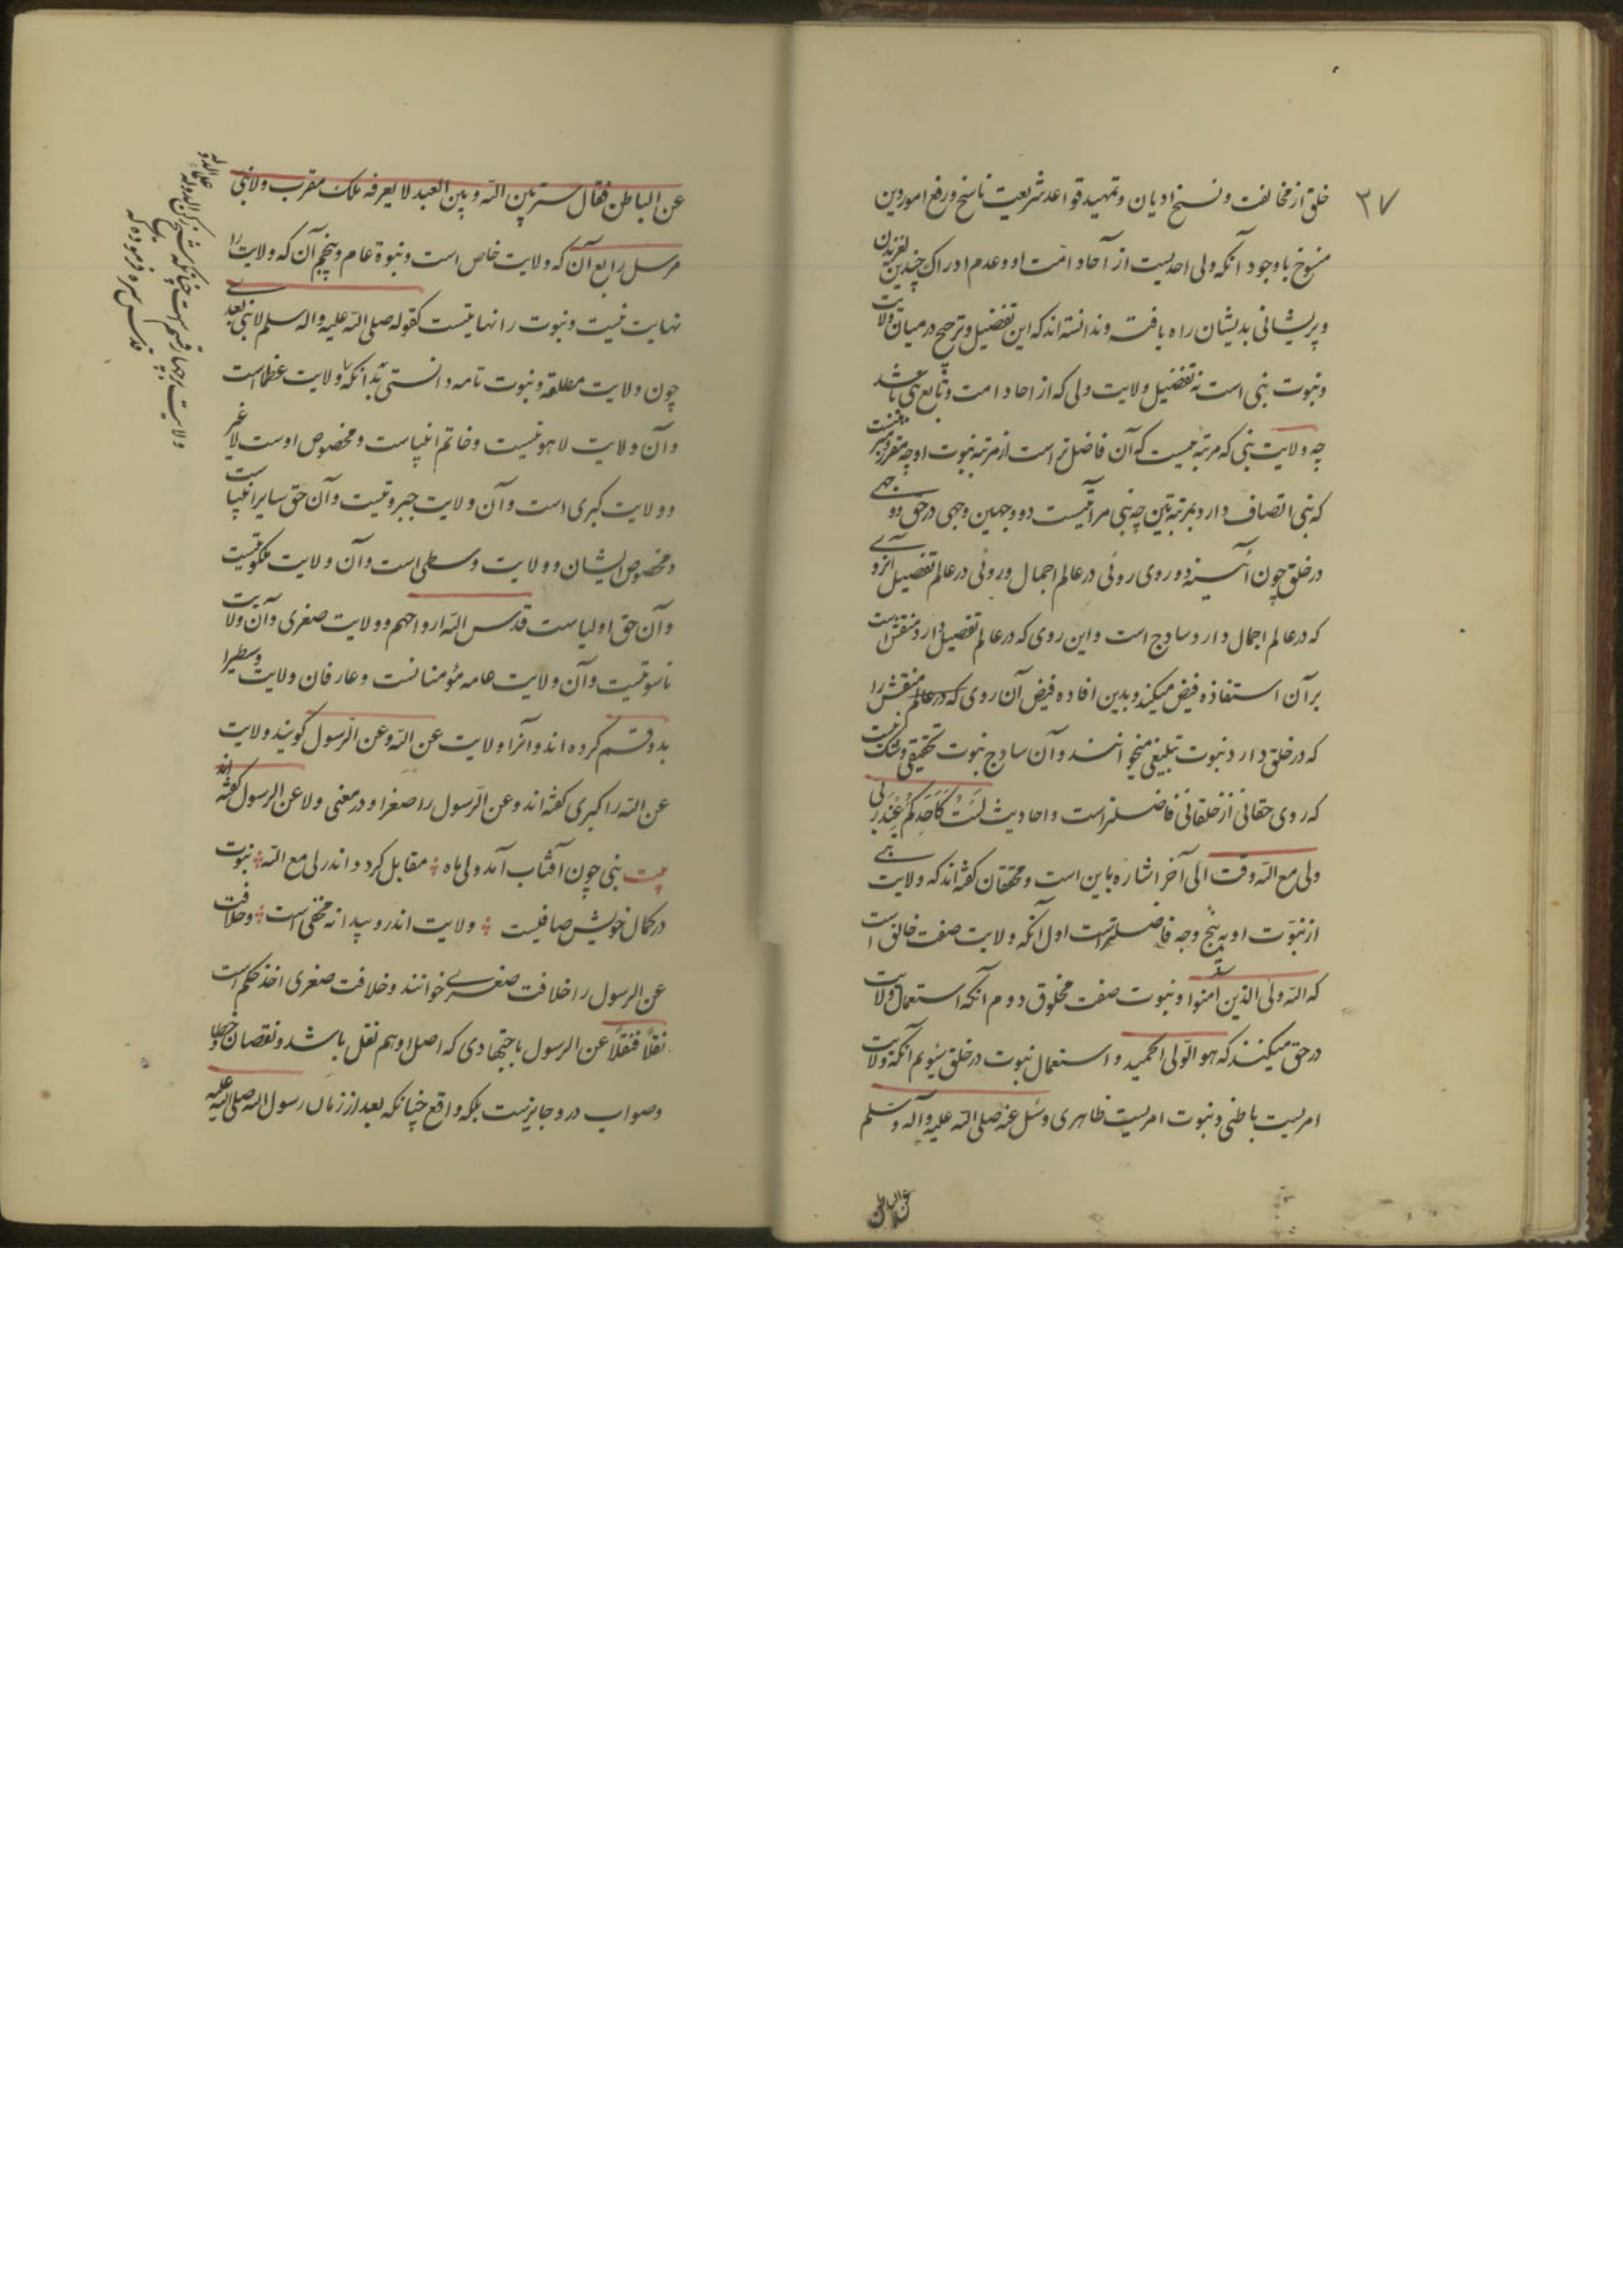 ۳۷
خلق از مخالفت و نسخ ادیان و تمهید قواعد شریعت ناسخ و رفع امور دین
منسوخ باوجود آنکه ولی احدیست از آحاد امت او و عدم ادراک چندین لغزیدن
و پریشانی بدیشان راه یافته و ندانسته‌اند که این تفضیل و ترجیح در میان ولایت
و نبوت نبی است نه تفضیل ولایت ولی که از احاد امت و تابع نبی باشد
چه ولایت نبی که مرتبه‌ایست که آن فاضلتر است از مرتبه نبوت او چه مقرر
که نبی اتصاف دارد بمرتبتین چه نبی مرآتیست دو وجهین وجهی در حق و وجهی
در خلق چون آئینه دو روی روئی در عالم اجمال و روئی در عالم تفصیل آنروی
که در عالم اجمال دارد ساذج است و این روی که در عالم تفصیل دارد منقش است
بر آن استفاذه فیض میکند و بدین افاده فیض آن روی که در عالم منقش را
که در خلق دارد نبوت تبلیغی میخوانند و آن ساذج نبوت تحقیقی و شک نیست
که روی حقانی از خلقانی فاضلتر است و احادیث لَسْتُ کَاَحَدِکُم عِنْدَ رَبّی
ولی مع الله وقت الی آخر اشاره باین است و محققان گفته‌اند که ولایت نبی
از نبوت او به پنج وجه فاضلتر است اول آنکه ولایت صفت خالق است
که الله ولی الذین آمنوا و نبوت صفت مخلوق دوم آنکه استعمال ولایت
در حق میکنند که هو الولی الحمید و استعمال نبوت در خلق سیوم آنکه ولایت
امریست باطنی و نبوت امریست ظاهری و سئل عنه صلی الله علیه و آله و سلم
عن الباطن
عن الباطن فقال سر بین الله و بین العبد لا یعرفه ملک مقرب ولا نبی
مرسل رابع آن که ولایت خاص است و نبوة عام و پنجم آن که ولایت را
نهایت نیست و نبوت را نهایتیست کقوله صلی الله علیه و اله سلم لا نبی بعدی
چون ولایت مطلقه و نبوت تامه دانستی بدانکه ولایت عظما است
و آن ولایت لاهوتیست و خاتم انبیاست و مخصوص اوست لا غیر
و ولایت کبری است و آن ولایت جبروتیست و آن حق سایر انبیاست
و مخصوص ایشان و ولایت وسطی است و آن ولایت ملکوتیست
و آن حق اولیاست قدس الله ارواحهم و ولایت صغری و آن ولایت
ناسوتیست و آن ولایت عامه مؤمنانست و عارفان ولایت وسطی را
بدو قسم کرده‌اند و آنرا ولایت عن الله و عن الرسول گویند ولایت
عن الله را کبری گفته‌اند و عن الرسول را صغرا و در معنی ولا عن الرسول گفته‌اند
بیت نبی چون آفتاب آمد ولی ماه ؞ مقابل گردد اندر لی مع الله ؞ نبوت
در کمال خویش صافیست ؞ ولایت اندرو پیدا نه مخفی است ؞ و خلافت
عن الرسول را خلافت صغری خوانند و خلافت صغری اخذ حکم است
نقلاً فنقلاً عن الرسول یا اجتهادی که اصل او هم نقل باشد و نقصان و خطا
و صواب درو جایزست بلکه واقع چنانکه بعد از زمان رسول الله صلی الله علیه
ولایت بر چهار قسم است چنانکه شیخ رکن الدوله علاء الدوله
قدس سره فرموده که